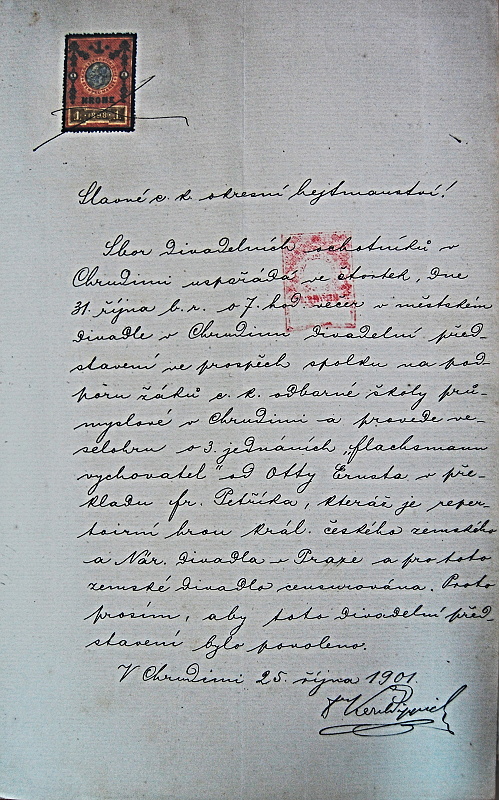 KRONE
1 1898 1
Slavné c. k. okresní hejtmanství!
Sbor divadelních ochotníků v
Chrudimi uspořádá ve čtvrtek, dne
31. října b. r. o 7. hod večer v městském
divadle v Chrudimi divadelní před-
stavení ve prospěch spolku na pod-
poru žáků c. k. odborné školy prů-
myslové v Chrudimi a provede ve-
selohru o 3. jednáních „Flachsmann
vychovatel" od Otty Ernsta v pře-
kladu Fr. Petříka, kteráž je reper-
toirní hrou král. českého zemského
a Nár. divadla v Praze a pro toto
zemské divadlo censurována. Proto
prosím, aby toto divadelní před-
stavení bylo povoleno.
V Chrudimi 25. října 1901.
Dr Karel Pippich